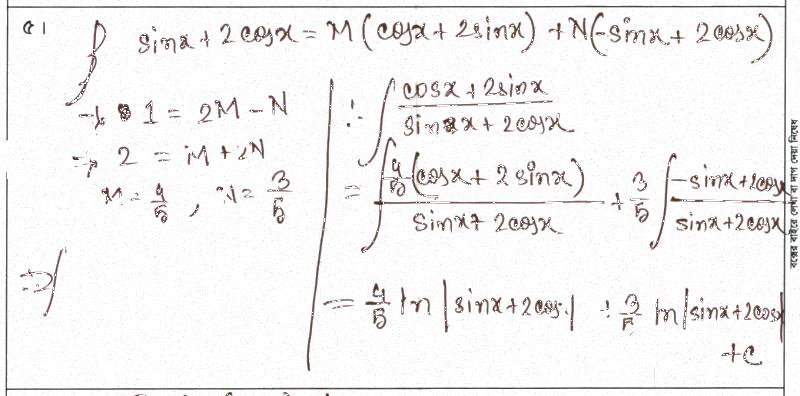 ৫। ∫ sinx + 2cosx = M(cosx + 2sinx) + N(-sinx + 2cosx)
→ 1 = 2M - N
→ 2 = M + 2N
M = 4/5, N = 3/5
⇒
∴ ∫ (cosx + 2sinx)/(sinx + 2cosx)
= ∫ (4/5 (cosx + 2 sinx))/(sinx + 2cosx) + 3/5 ∫ (-sinx + 2cosx)/(sinx + 2cosx)
= 4/5 ln |sinx + 2cos.| + 3/5 ln |sinx + 2cosx|
+ c
বক্সের বাইরে লেখা বা দাগ দেয়া নিষেধ